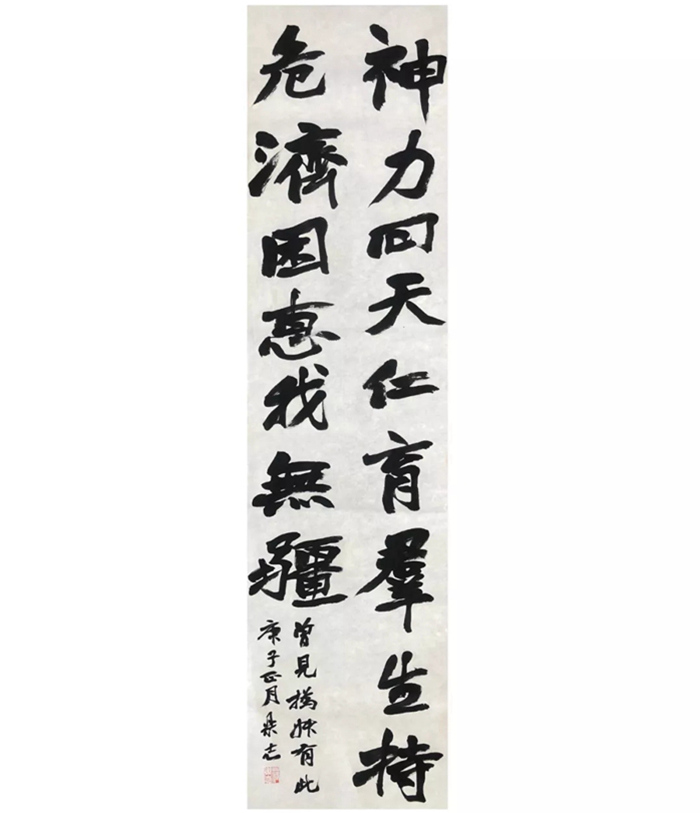 神力回天仁育羣生持
危濟困惠我無疆
曾見有此
庚子正月志